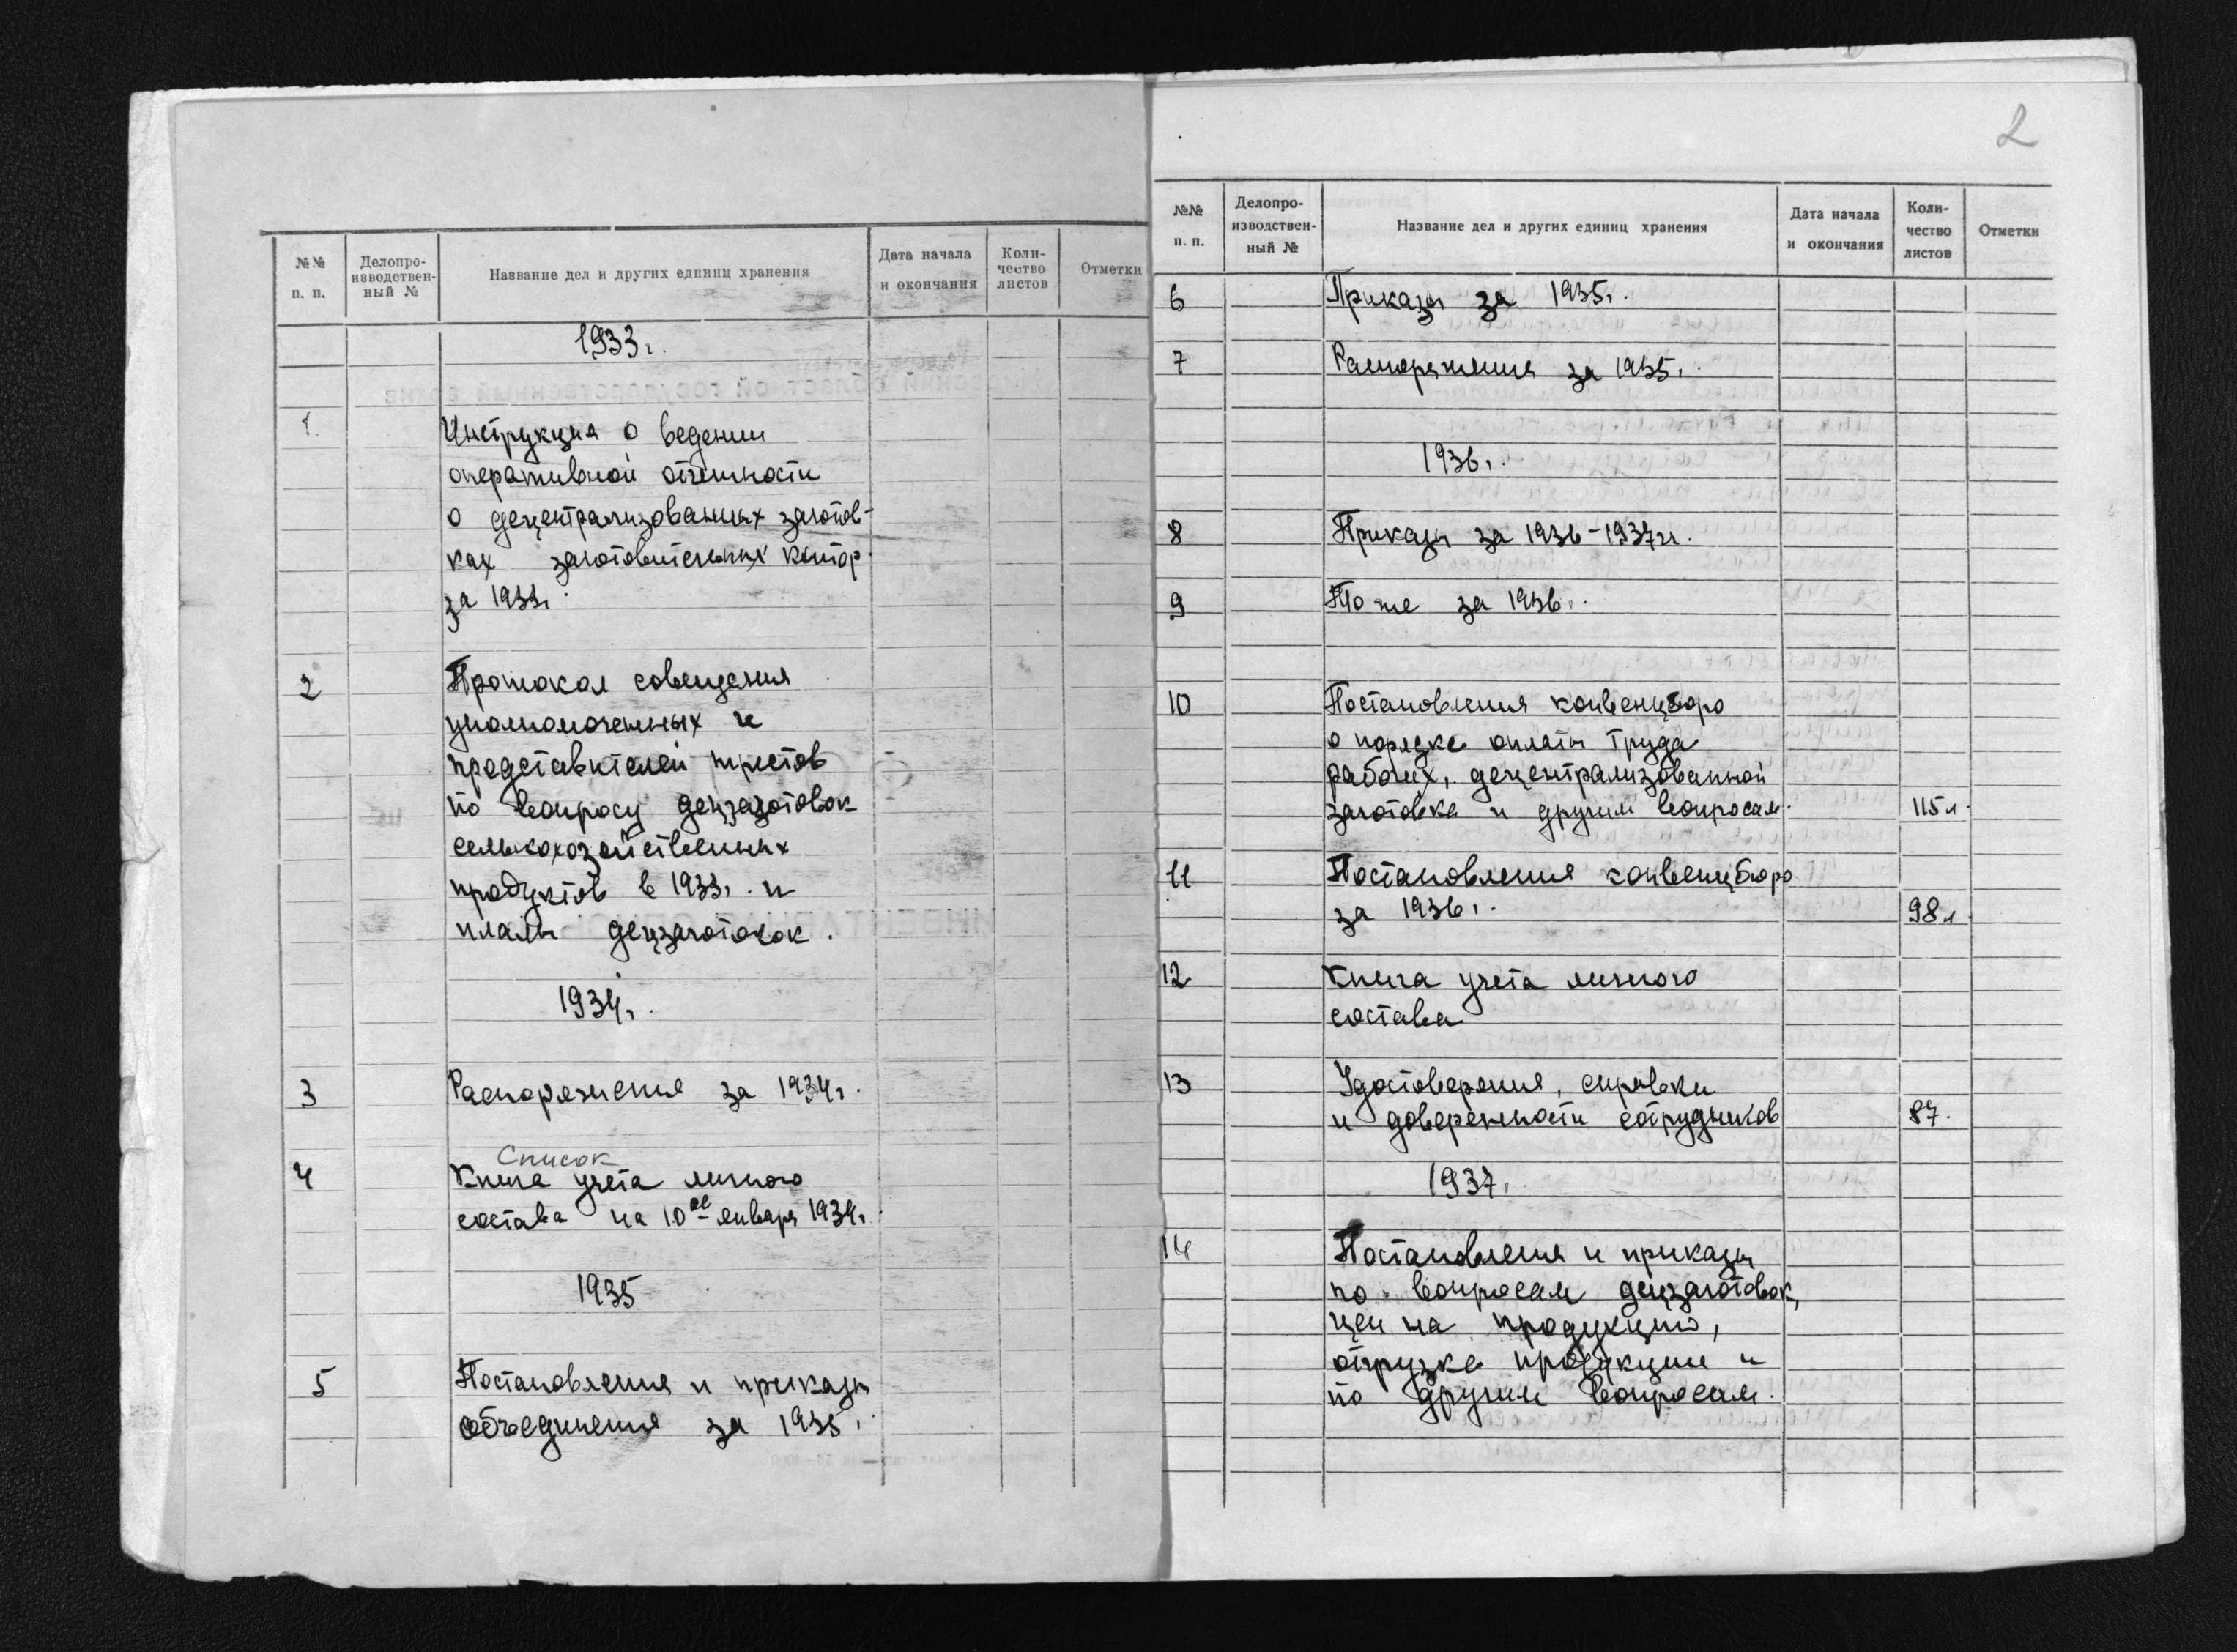 №№ п. п.
Делопро-
изводствен-
ный №
Название дел и других единиц хранения
Дата начала
и окончания
Коли-
чество
листов
Отметки
1933 г.
1.
Инструкция о ведении
оперативной отчетности
о децентрализованных заготов-
ках заготовительных контор
за 1933г.
2
Протокол совещания
уполномоченных и
представителей трестов
по вопросу децзаготовок
сельскохозяйственных
продуктов в 1933г. и
планы децзаготовок.
1934г.
3
Распоряжения за 1934г.
Список
4
Книга учета личного
состава на 10ое января 1934г.
1935
5
Постановления и приказы
объединения за 1935г.
2
№№
п. п.
Делопро-
изводствен-
ный №
Название дел и других единиц хранения
Дата начала
и окончания
Коли-
чество
листов
Отметки
6
Приказы за 1935г.
7
Распоряжения за 1935г.
1936г.
8
Приказы за 1936-1937гг.
9
То же за 1936г.
10
Постановления конвенцбюро
о порядке оплаты труда
рабочих, децентрализованной
заготовке и другим вопросам.
115л.
11
Постановления конвенцбюро
за 1936г.
98л.
12
Книга учета личного
состава
13
Удостоверения, справки
и доверенности сотрудников
87.
1937г.
14
Постановления и приказы
по вопросам децзаготовок,
цен на продукцию,
отгрузке продукции и
по другим вопросам.